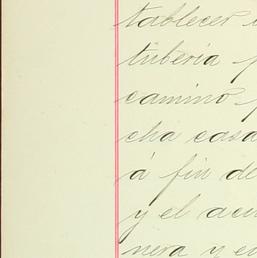 tablecer
tubería
camino
cha casa
á fin de
y el
nera y en